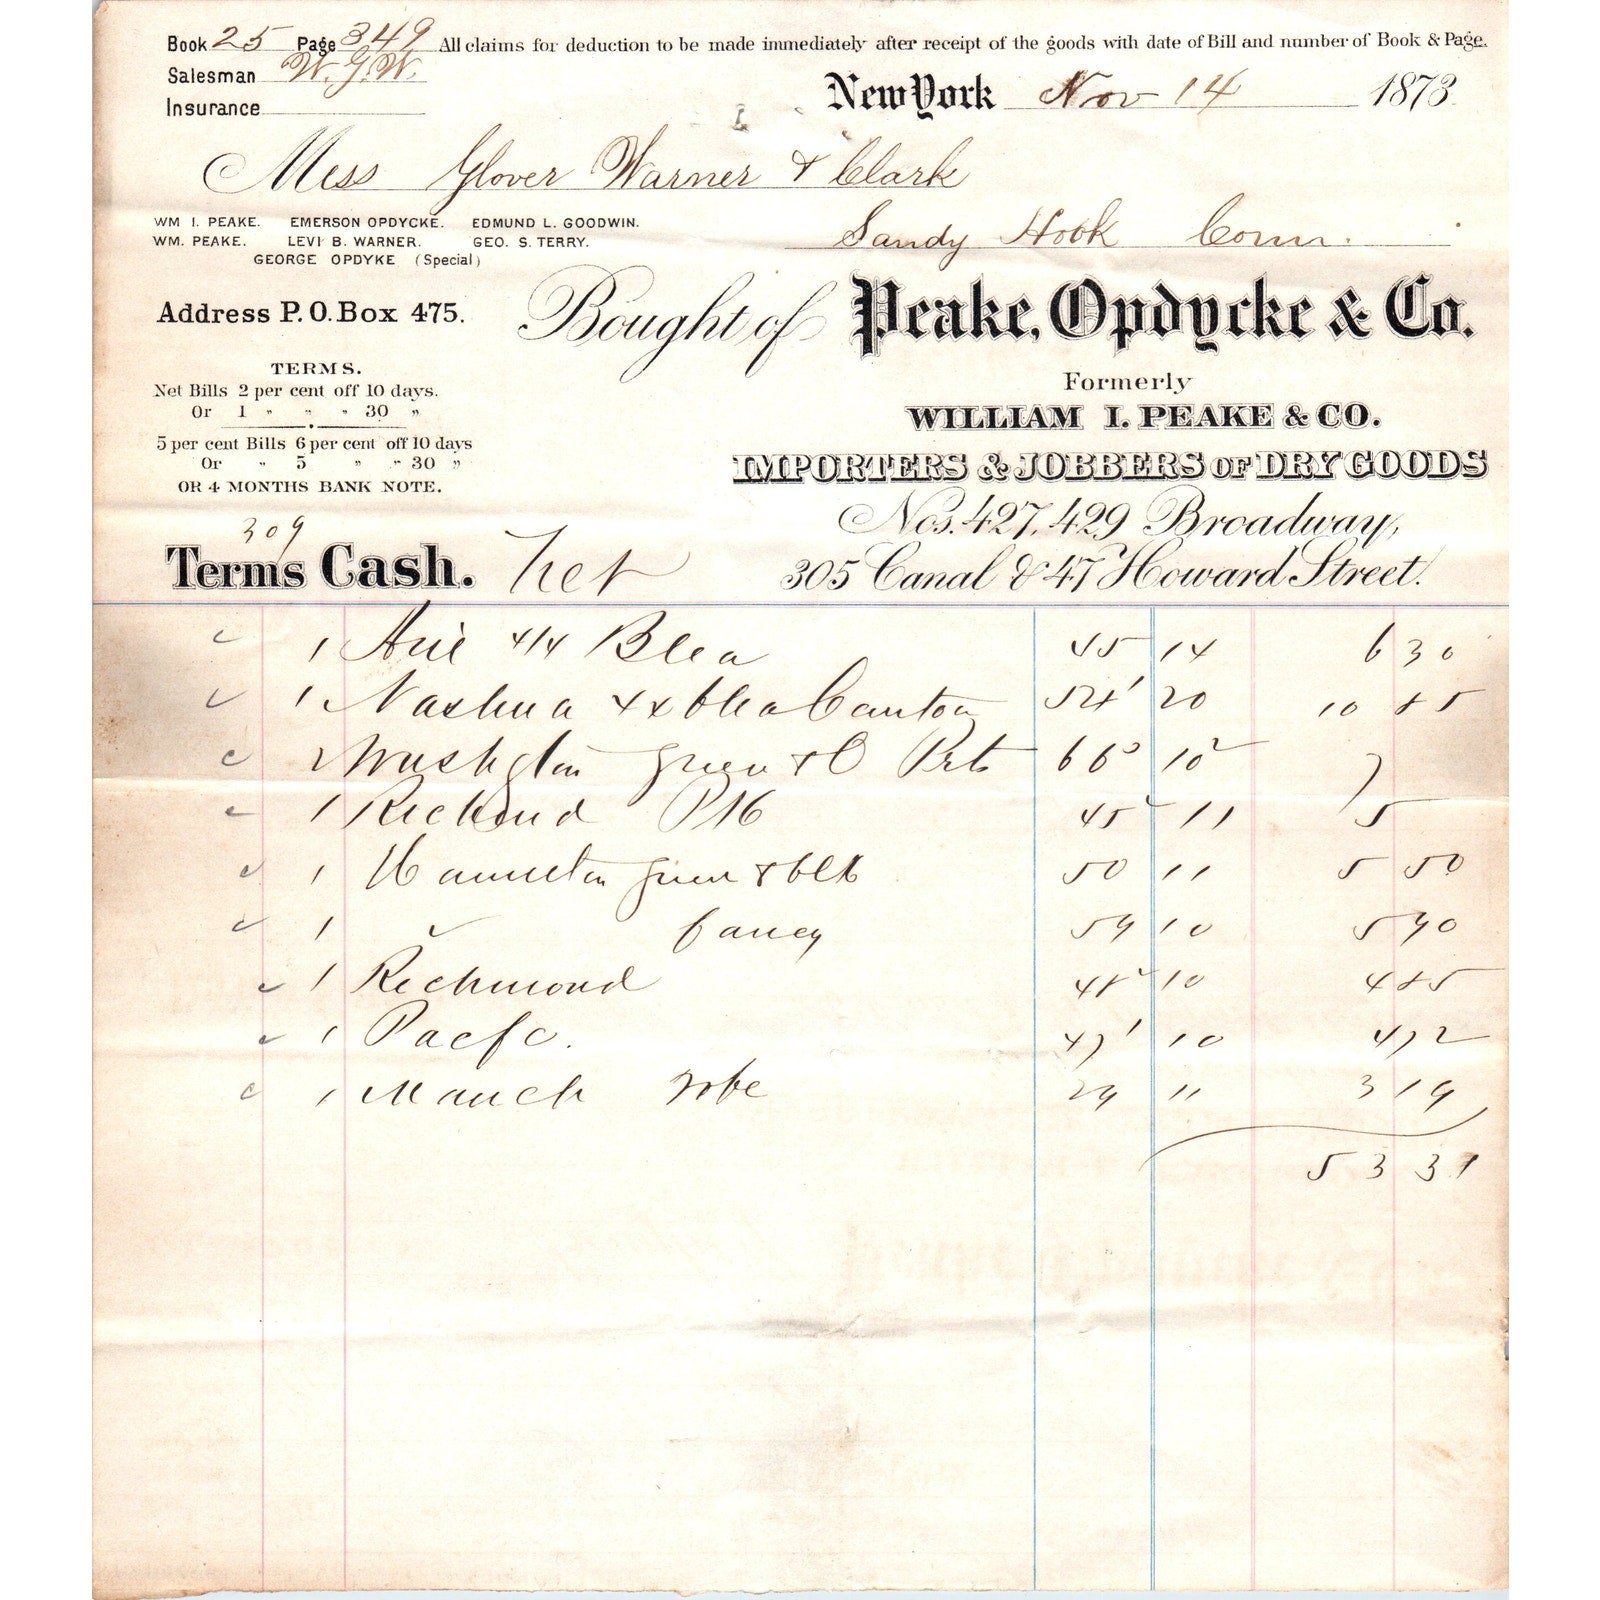 Book 25 Page 349 All claims for deduction to be made immediately after receipt of the goods with date of Bill and number of Book & Page.
Salesman W. G. W.
Insurance
New York Nov 14 1873
Mess Glover Warner & Clark
Sandy Hook Conn.
WM I. PEAKE. EMERSON OPDYCKE. EDMUND L. GOODWIN.
WM. PEAKE. LEVI B. WARNER. GEO. S. TERRY.
GEORGE OPDYKE (Special)
Address P. O. Box 475.
Bought of Peake, Opdycke & Co.
TERMS.
Net Bills 2 per cent off 10 days.
Or 1 " " " 30 "
5 per cent Bills 6 per cent off 10 days
Or " 5 " " 30 "
OR 4 MONTHS BANK NOTE.
Formerly
WILLIAM I. PEAKE & CO.
IMPORTERS & JOBBERS OF DRY GOODS
Nos. 427, 429 Broadway,
305 Canal & 47 Howard Street.
309
Terms Cash. Net
1 4/4 Blea 45 14 6 30
1 Nashua xx blea Canton 54 20 10 85
2 Washgton green & O Prts 66 10 7
1 Richmd 45 11 5
1 Hamilton green & blk 50 11 5 50
1 " fancy 59 10 5 90
1 Richmond 48 10 4 85
1 Pacfc. 47 10 4 72
1 Manch robe 29 11 3 19
53 31